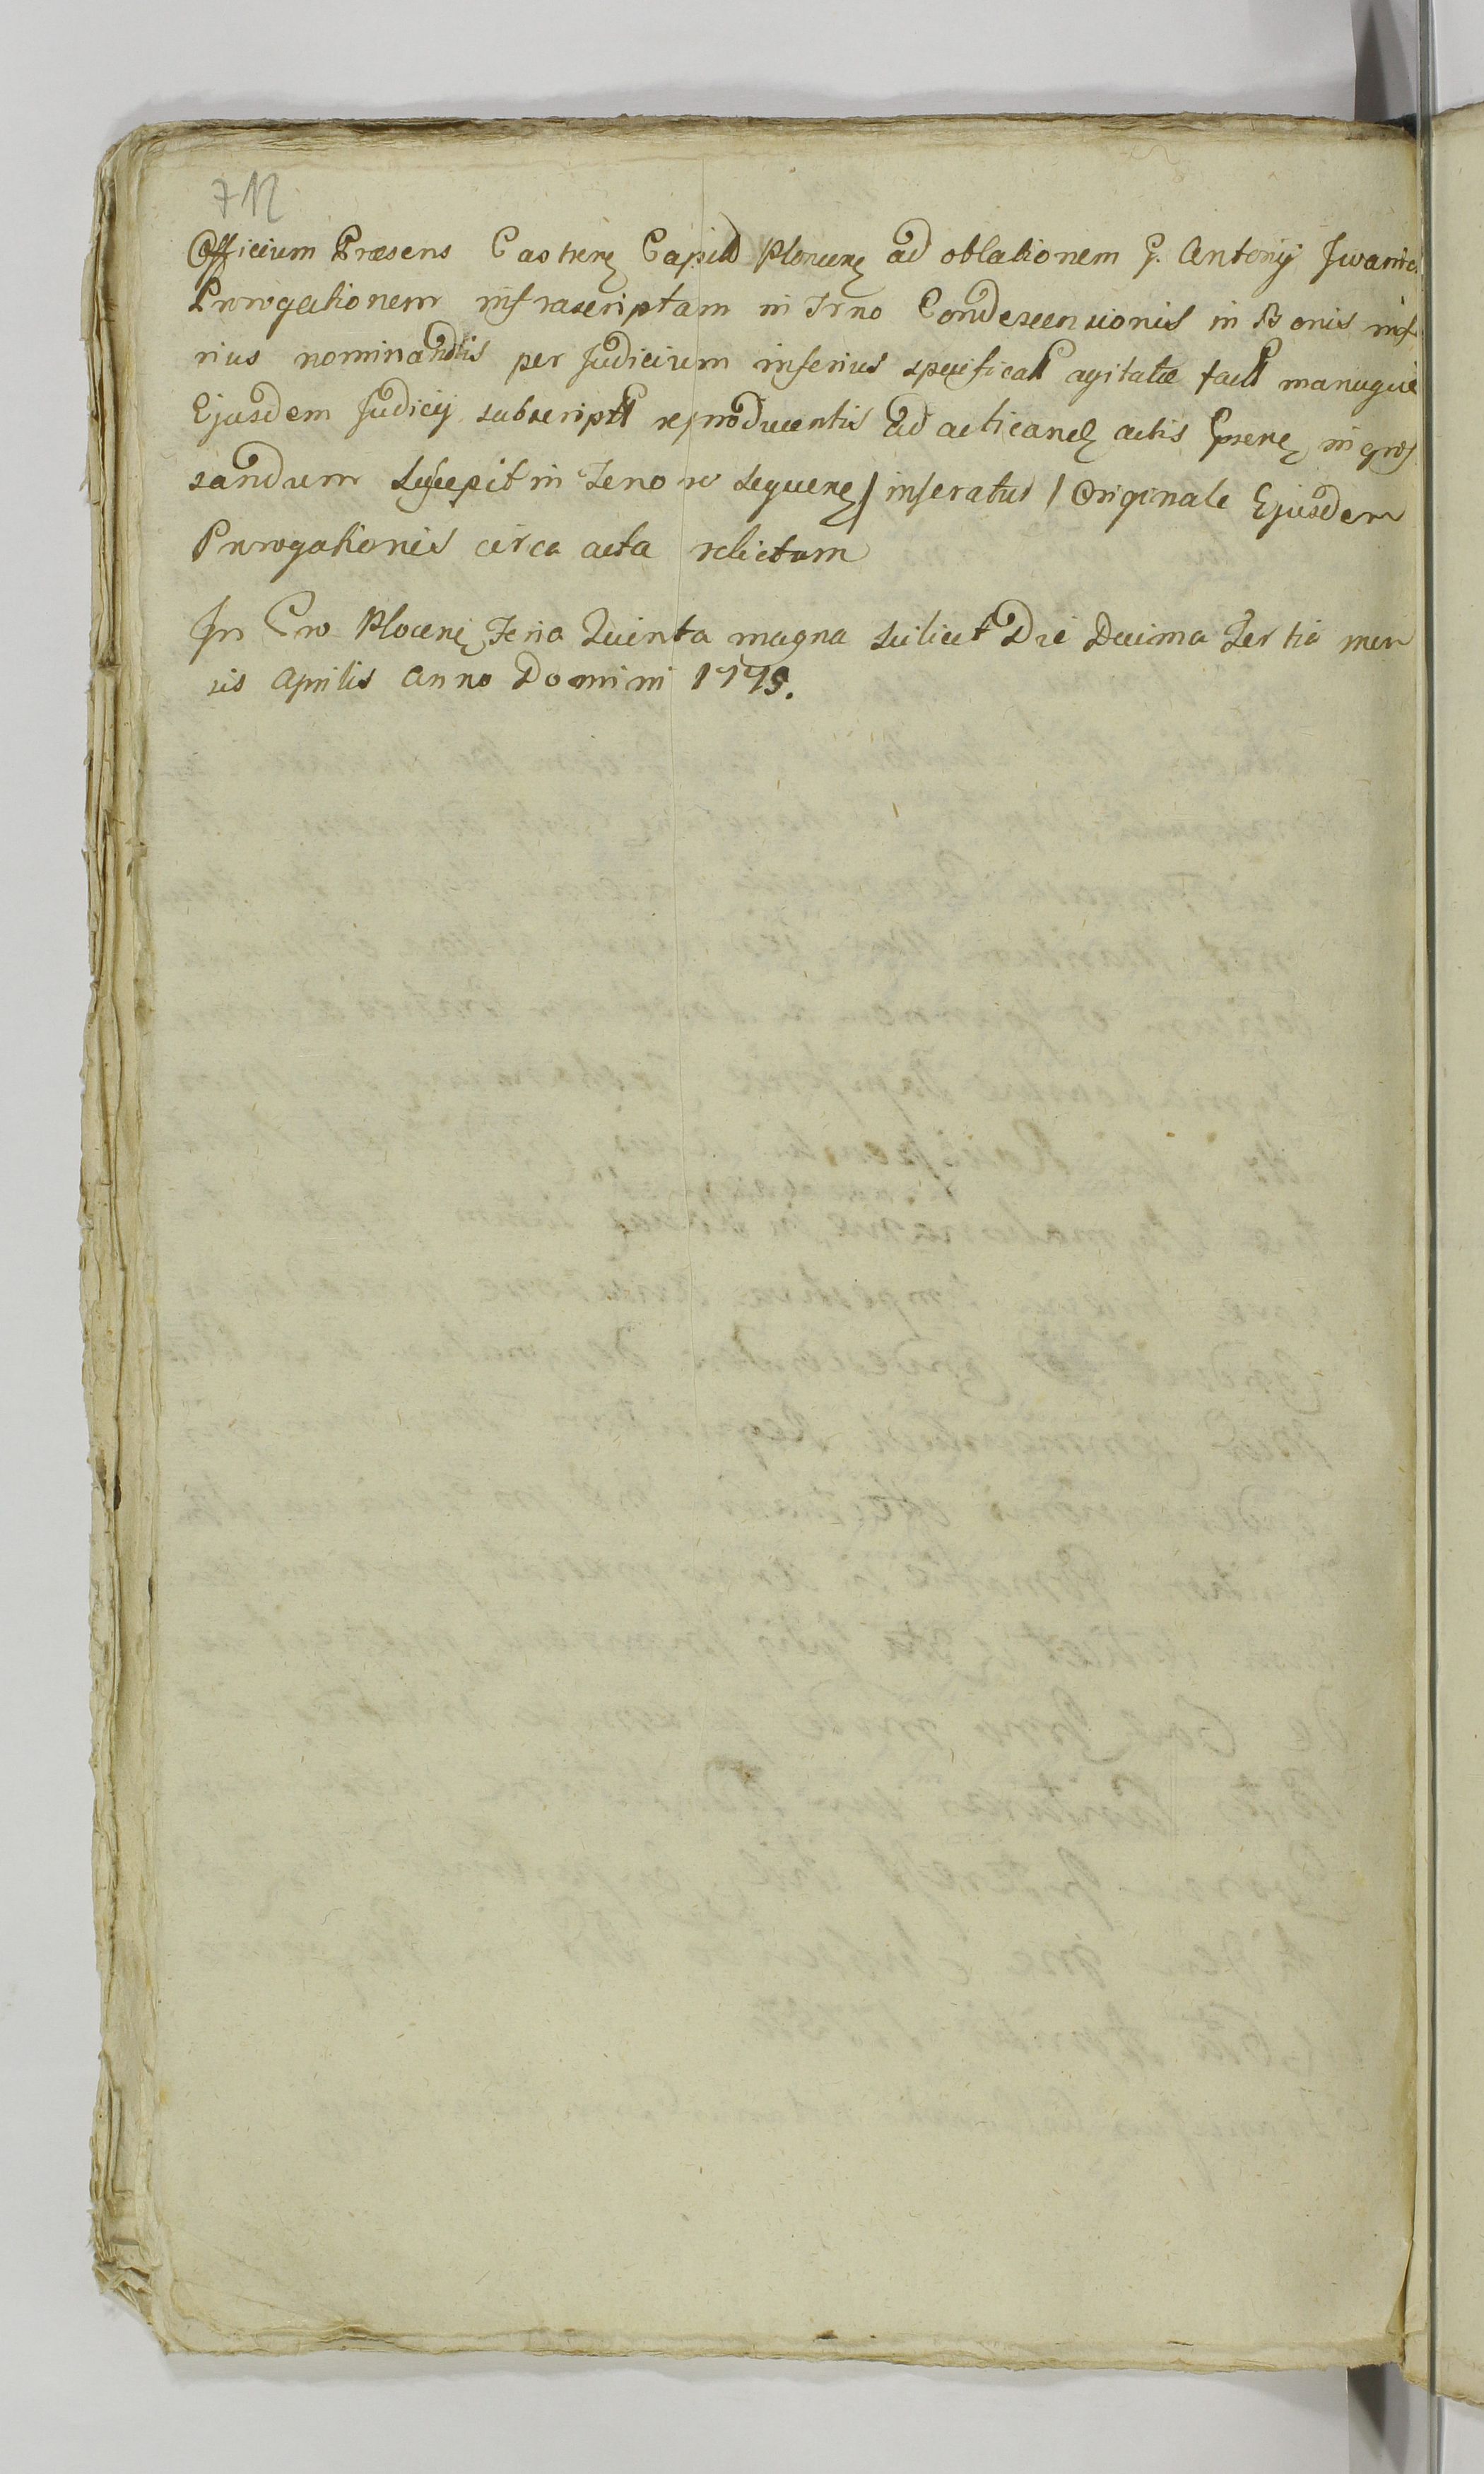 712
Officium Præsens Castren Capitl Plocen ad oblationem G. Antonij Iwanic
Prorogationem infrascriptam in Trno Condescensionis in Bonis infe
rius nominandis per Judicium inferius specificatt agitatæ factt manuque
Ejusdem Judicij subscriptt reproducentis ad acticand actis Gprens ingros
sandum suscepit in Tenore sequenc / inseratus / Originale Ejusdem
Prorogationis circa acta relictum
In Cro Plocen Feria Quinta magna scilicet Die Decima Tertia men
sis Aprilis Anno Domini 1775.